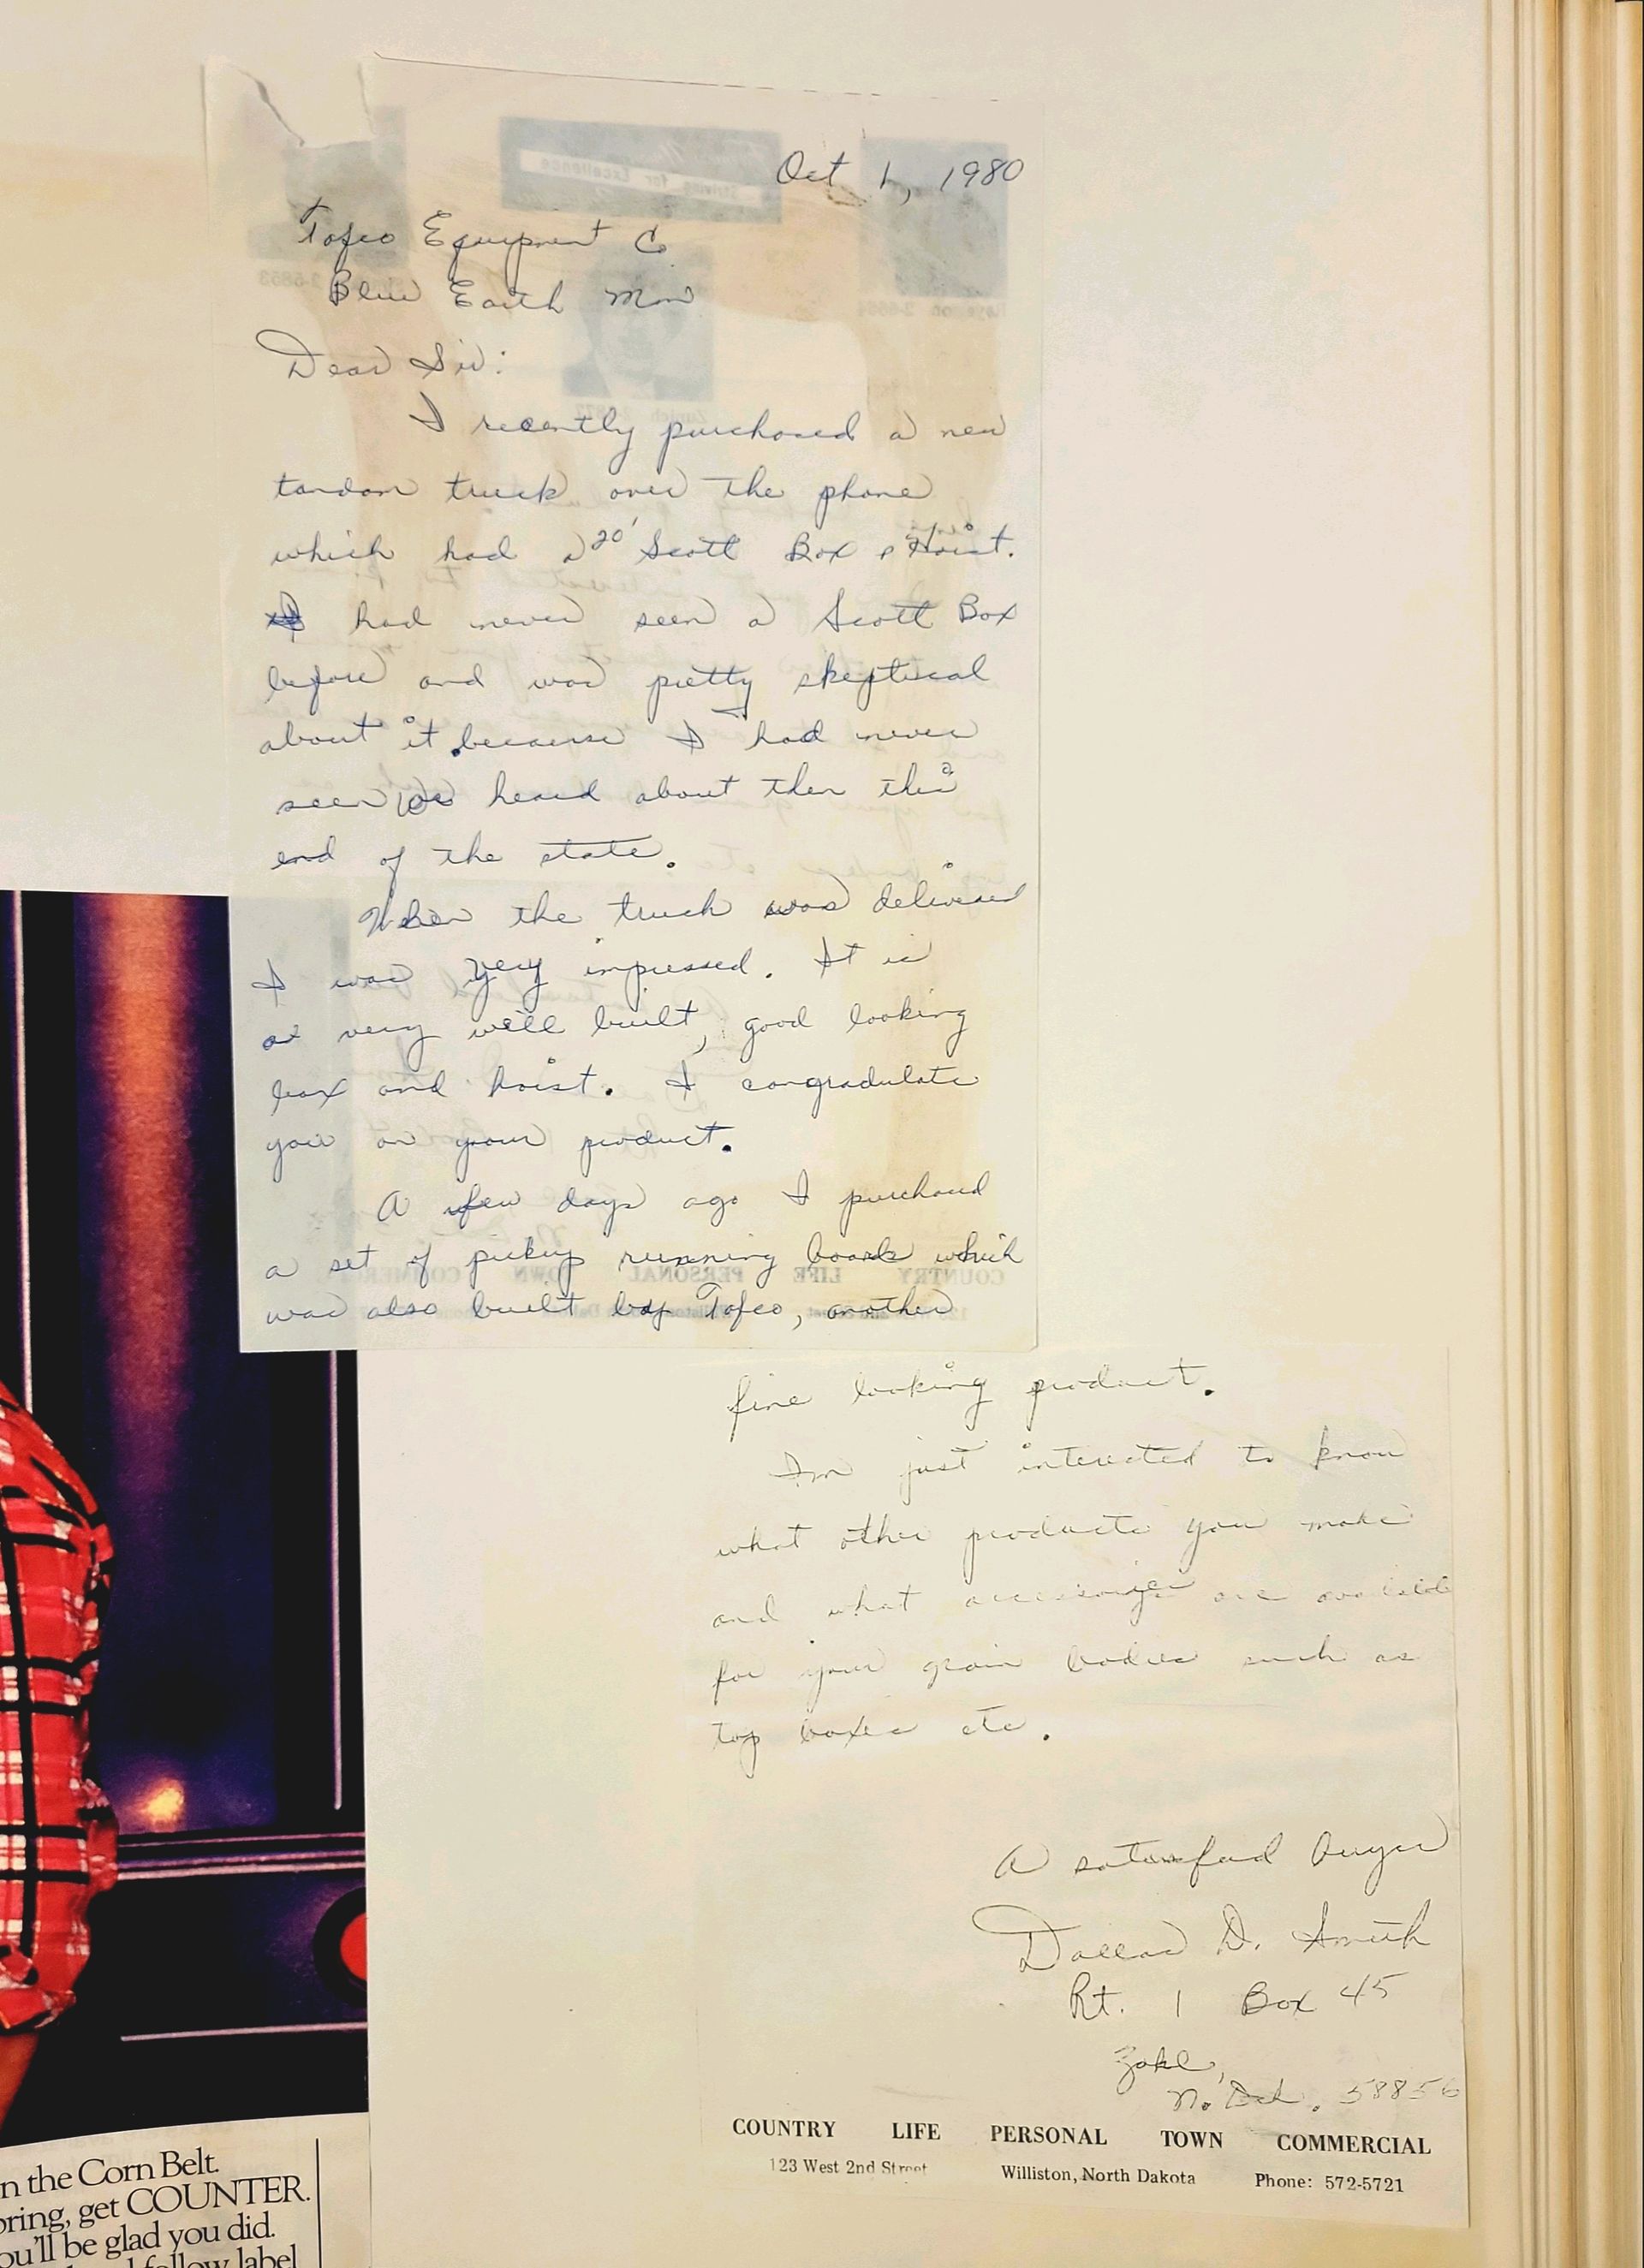 Oct 1, 1980
Tofco Equipment Co
Blue Earth Minn
Dear Sir:
I recently purchased a new
tandam truck over the phone
which had a 20' Scott Box & Hoist.
I had never seen a Scott Box
before and was pretty skeptical
about it because I had never
seen or heard about then this
end of the state.
When the truck was delivered
I was very impressed. It is
a very well built, good looking
box and hoist. I congradulate
you on your product.
A few days ago I purchased
a set of pickup running boards which
was also built by Tofco, another
fine looking product.
Im just interested to know
what other products you make
and what accessories are available
for your grain bodies such as
top boxes etc.
A satisfied buyer
Dallas D. Smith
Rt. 1 Box 45
Zahl,
N. Dak. 58856
COUNTRY LIFE PERSONAL TOWN COMMERCIAL
123 West 2nd Street Williston, North Dakota Phone: 572-5721
n the Corn Belt.
pring, get COUNTER.
ou'll be glad you did.
follow label